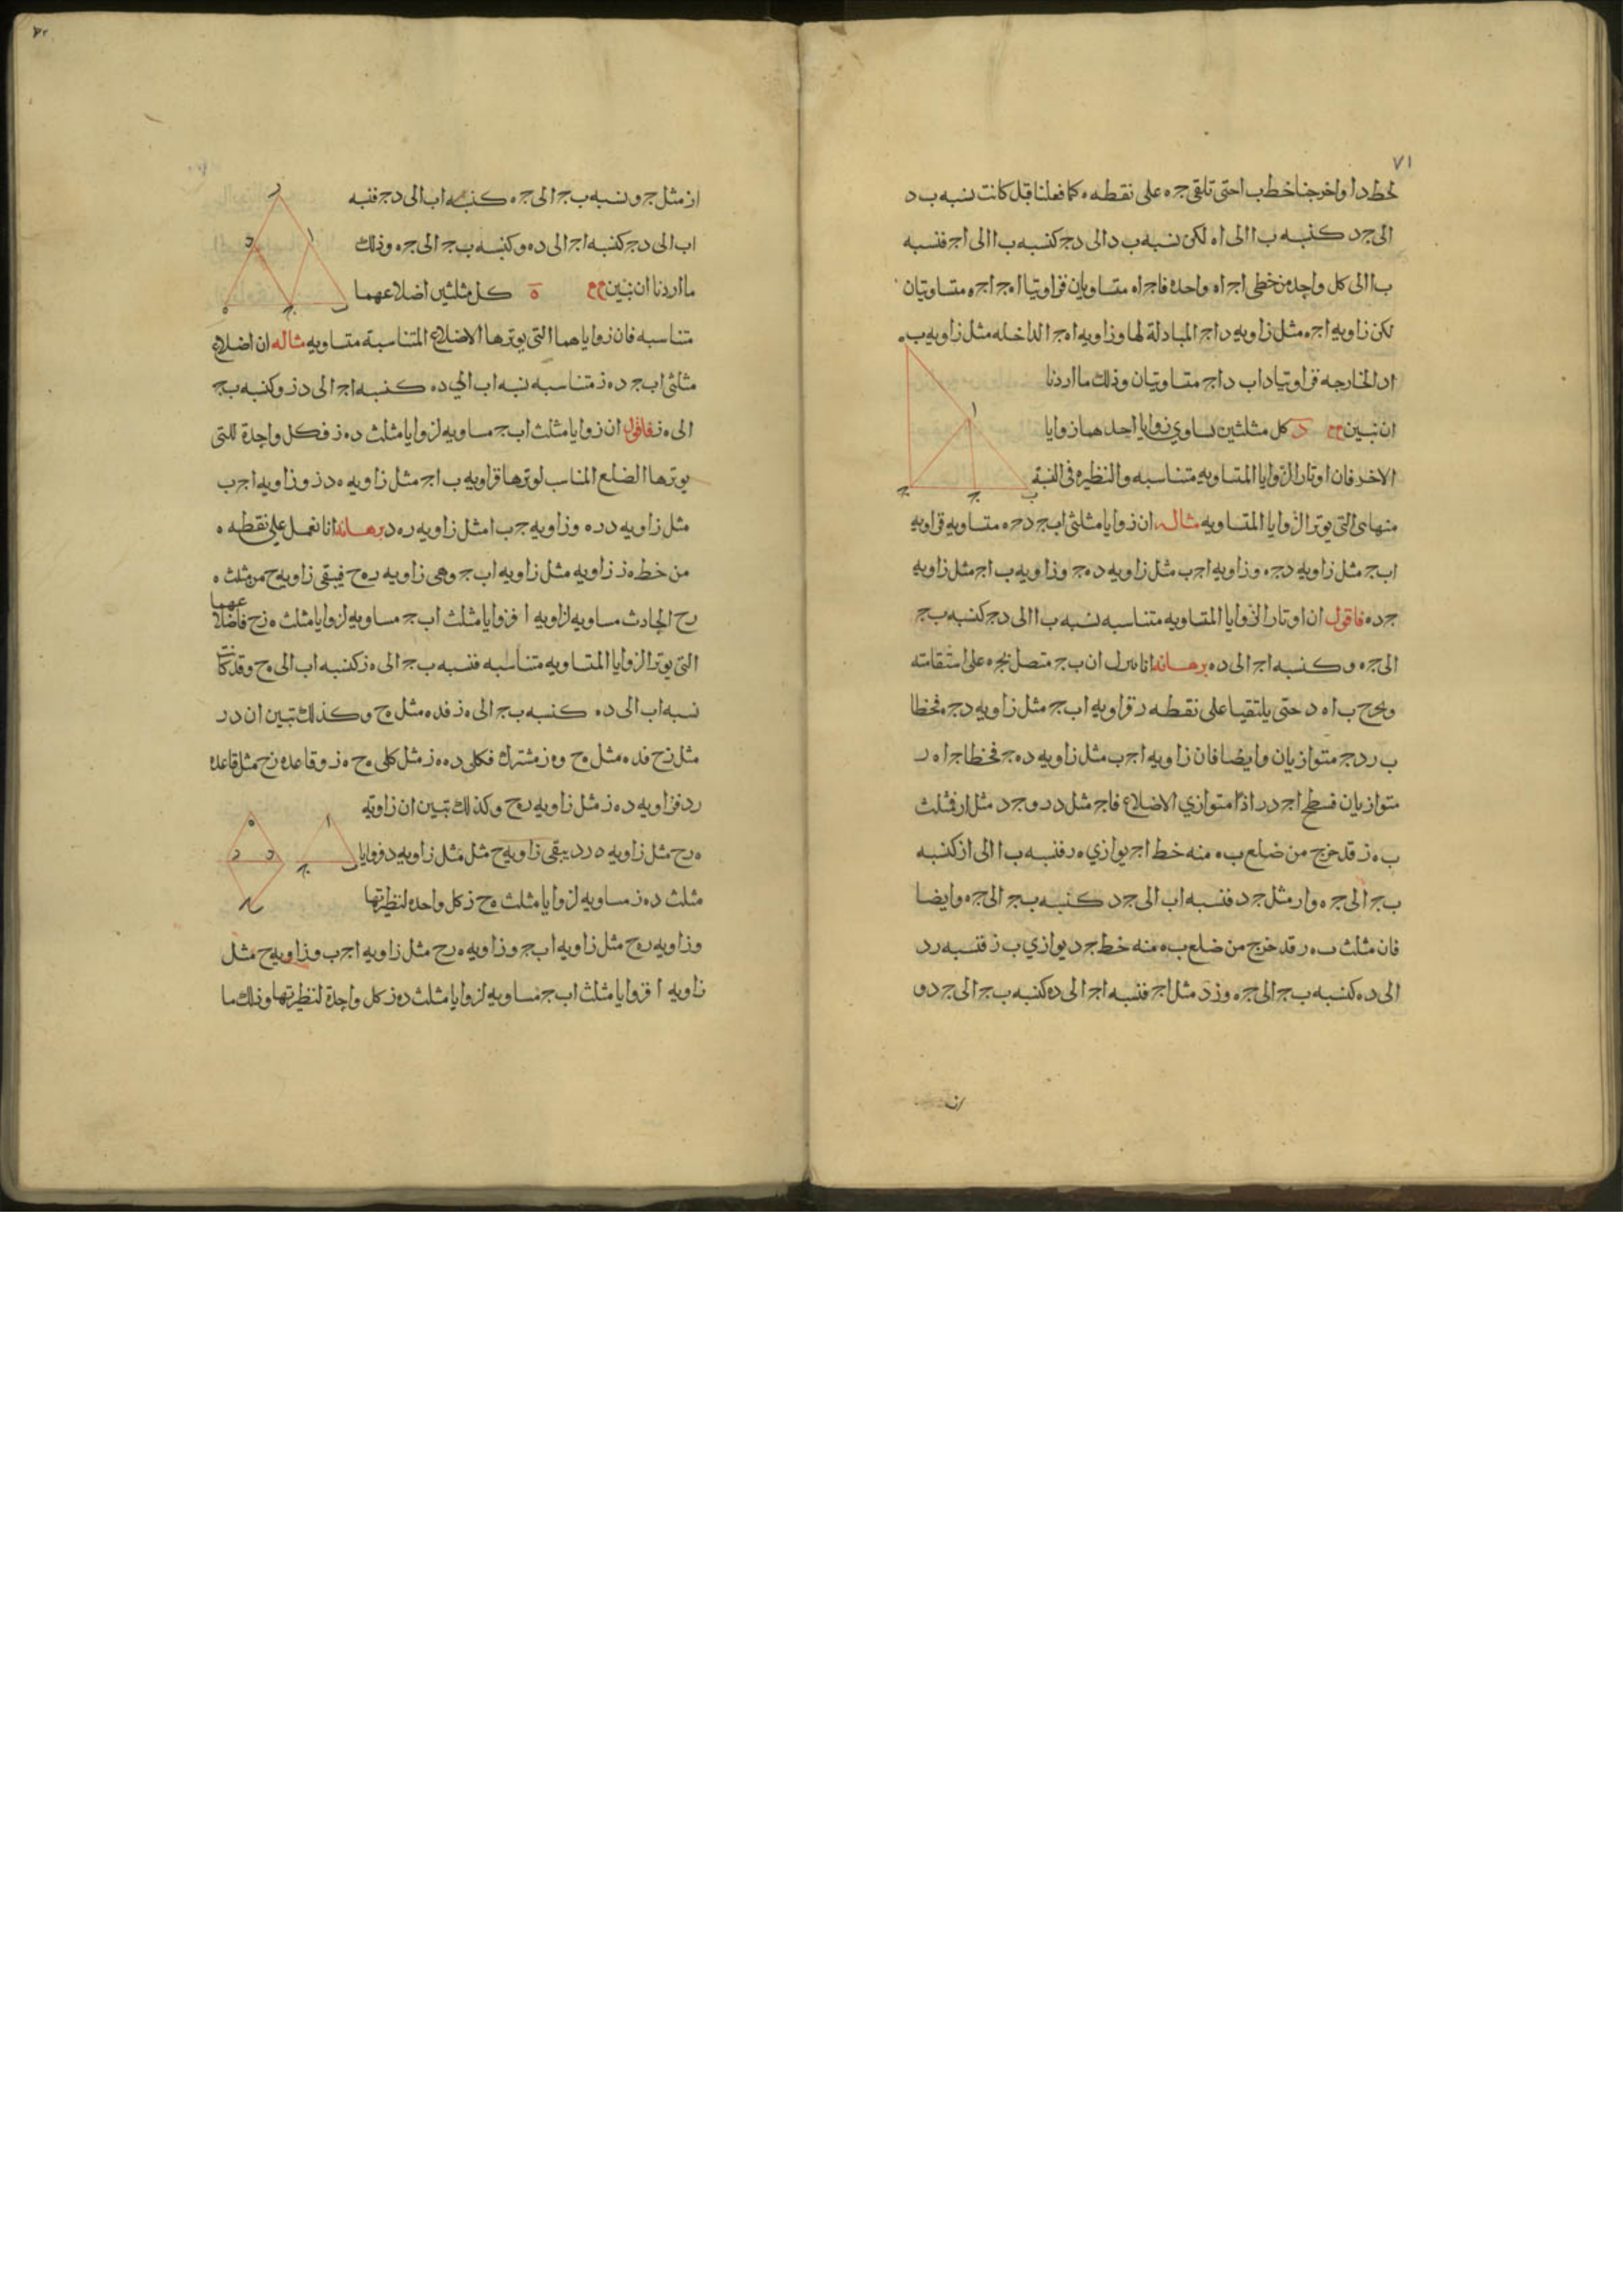 ٧١
لخط د ا واخرجنا خط ب ا حتى تلقى جـ ه على نقطه ه كما فعلنا قبل كانت نسبه ب د
الى جـ د كنسبه ب ا الى ا ه لكن نسبه ب د الى د جـ كنسبه ب ا الى ا جـ فنسبه
ب ا الى كل واحد من خطى ا جـ ا ه واحدة فا جـ ا ه متساويان فزاويتا ا ه جـ ا جـ ه متساويتان
لكن زاويه ا جـ ه مثل زاويه د ا جـ المبادلة لها وزاويه ا ه جـ الداخله مثل زاويه ب
ا د الخارجه فزاويتا د ا ب د ا جـ متساويتان وذلك ما اردنا
ان نبين د كل مثلثين تساوي زوايا احدهما زوايا
الاخر فان اوتار الزوايا المتساويه متناسبه والنظيره فى النسبة
منها هى التى يوتر الزوايا المتساويه مثاله ان زوايا مثلثى ا ب جـ د جـ ه متساويه فزاويه
ا ب جـ مثل زاويه د جـ ه وزاويه ا جـ ب مثل زاويه د ه جـ وزاويه ب ا جـ مثل زاويه
جـ د ه فاقول ان اوتار الزوايا المتساويه متناسبه نسبه ب ا الى د جـ كنسبه ب جـ
الى جـ ه وكنسبه ا جـ الى د ه برهانه انا ننزل ان ب جـ متصل بجـ ه على استقامته
ونخرج ب ا ه د حتى يلتقيا على نقطه ر فزاويه ا ب جـ مثل زاويه د جـ ه فخطا
ب ر د جـ متوازيان وايضا فان زاويه ا جـ ب مثل زاويه د ه جـ فخطا جـ ا ه ر
متوازيان فسطح ا جـ د ر اذا متوازي الاضلاع فا جـ مثل د ر و جـ د مثل ا ر فمثلث
ب ه ز قد خرج من ضلع ب ه منه خط ا جـ يوازي ه ر فنسبه ب ا الى ا ز كنسبه
ب جـ الى جـ ه و ا ر مثل جـ د فنسبه ا ب الى جـ د كنسبه ب جـ الى جـ ه وايضا
فان مثلث ب ه ر قد خرج من ضلع ب ه منه خط جـ د يوازي ب ز فنسبه ر د
الى د ه كنسبه ب جـ الى جـ ه و ز د مثل ا جـ فنسبه ا جـ الى د ه كنسبه ب جـ الى جـ د و
ا
ب
جـ
ه
٧٢
ا ز مثل جـ و نسبه ب جـ الى جـ ه كنسبه ا ب الى د جـ فنسبه
ا ب الى د جـ كنسبه ا جـ الى د ه وكنسبه ب جـ الى جـ ه وذلك
ما اردنا ان نبين ه كل مثلثين اضلاعهما
متناسبه فان زواياهما التى يوترها الاضلاع المتناسبة متساويه مثاله ان اضلاع
مثلثى ا ب جـ د ه ز متناسبه نسبه ا ب الى د ه كنسبه ا جـ الى د ز وكنسبه ب جـ
الى ه ز فاقول ان زوايا مثلث ا ب جـ مساويه لزوايا مثلث د ه ز فكل واحدة للتى
يوترها الضلع المناسب لوترها فزاويه ب ا جـ مثل زاويه ه د ز وزاويه ا جـ ب
مثل زاويه د ر ه وزاويه جـ ب ا مثل زاويه ر ه د برهانه انا نعمل على نقطه ه
من خط ه ز زاويه مثل زاويه ا ب جـ وهى زاويه ر ه ح فيبقى زاويه ح من مثلث ه
ر ح الحادث مساويه لزاويه ا فزوايا مثلث ا ب جـ مساويه لزوايا مثلث ه ز ح فاضلاعهما
التى يوتر الزوايا المتساويه متناسبه فنسبه ب جـ الى ه ز كنسبه ا ب الى ه ح وقد كانت
نسبه ا ب الى د ه كنسبه ب جـ الى ه ز فد ه مثل ه ح وكذلك تبين ان د ر
مثل ز ح فد ه مثل ه ح و ه ز مشترك فكلى د ه ه ز مثل كلى ه ح ه ز وقاعده ز ح مثل قاعده
ر د فزاويه د ه ز مثل زاويه ر ه ح وكذلك تبين ان زاويه
ه ر ح مثل زاويه ه ر د يبقى زاويه ح مثل مثل زاويه د فزوايا
مثلث د ه ز مساويه لزوايا مثلث ه ح ز كل واحده لنظيرتها
وزاويه ر ه ح مثل زاويه ا ب جـ وزاويه ه ر ح مثل زاويه ا جـ ب وزاويه ح مثل
زاويه ا فزوايا مثلث ا ب جـ مساويه لزوايا مثلث د ه ز كل واحدة لنظيرتها وذلك ما